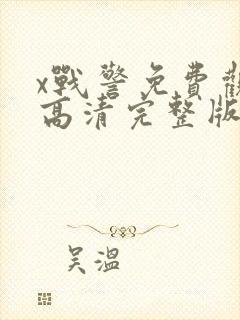 x戰警免費觀
高清完整版
吴溫